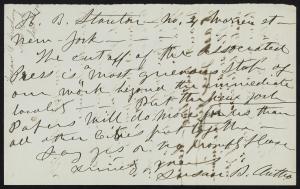 H. B. Stanton — No.
New York —
The cut off of the Associated
Press is "most grievous stop of
our work beyond the immediate
locality — But the New York
Papers will do more for us than
all other Cities put together
Say yes or no promptly
Sincerely yours
Susan B. Antho